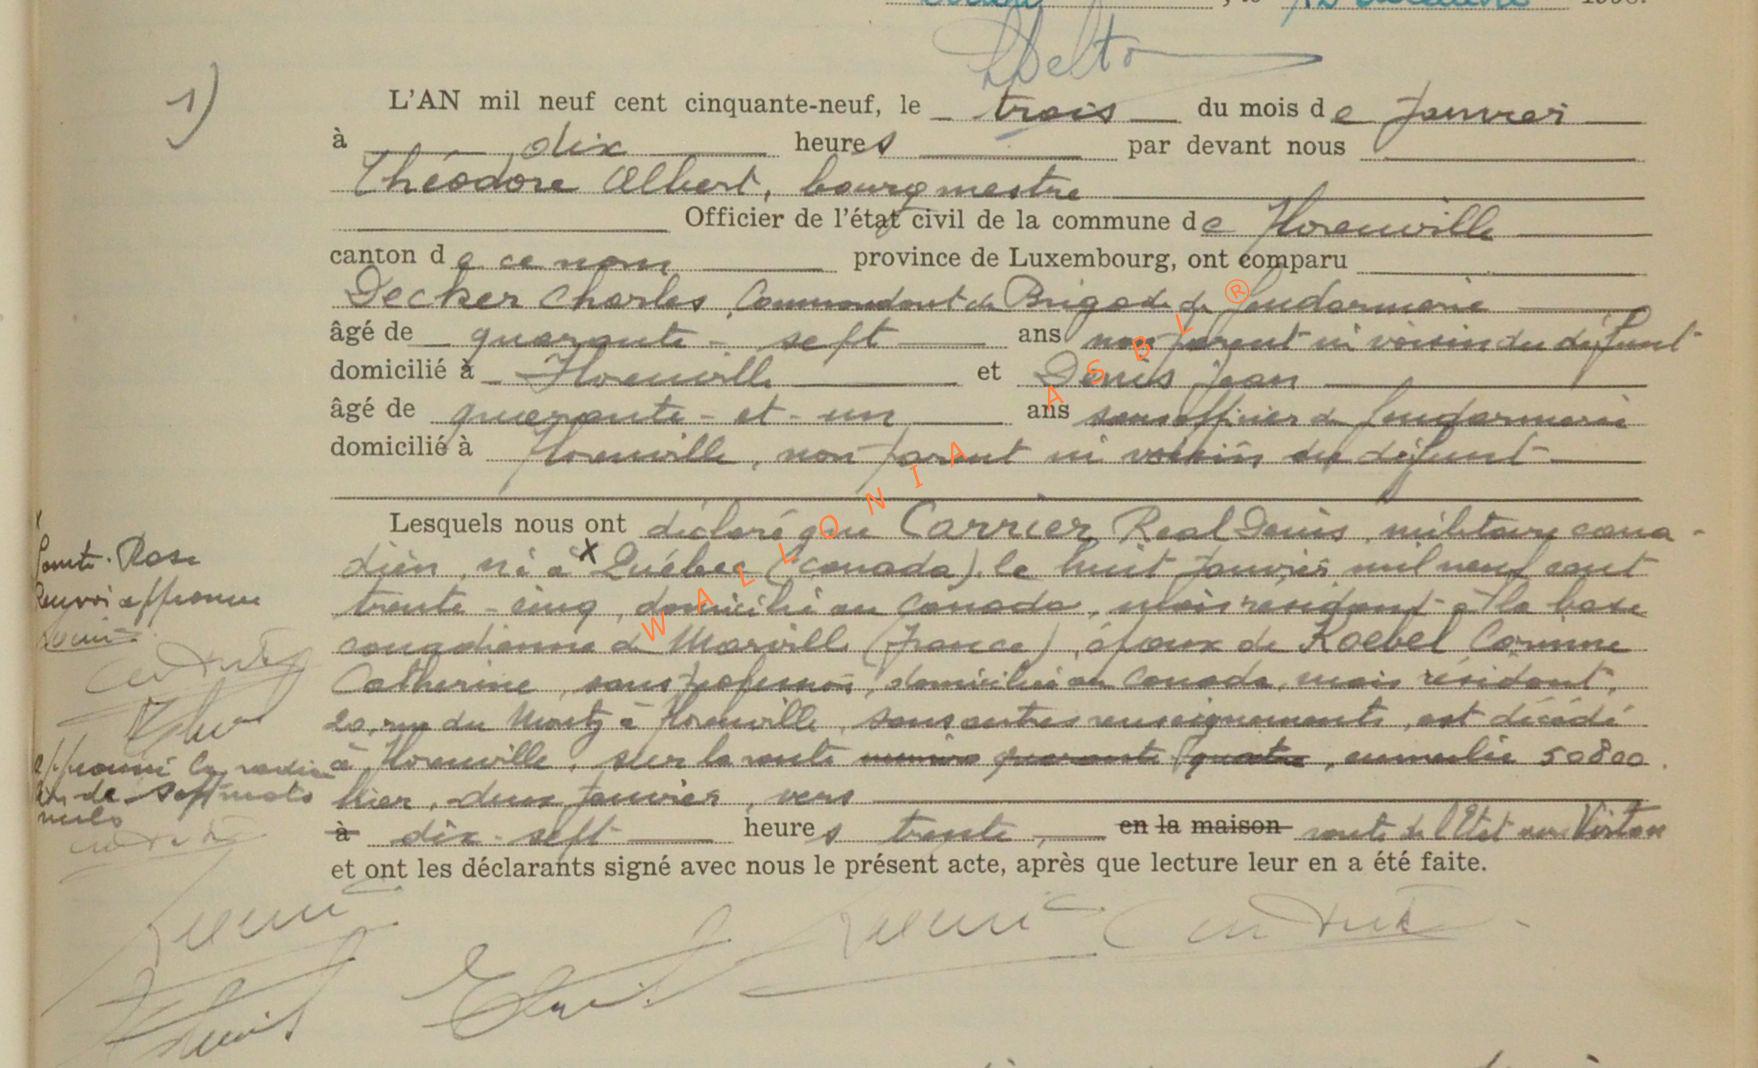 1)
L'AN mil neuf cent cinquante-neuf, le trois du mois de Janvier
à dix heures par devant nous
Théodore Albert, bourgmestre
Officier de l'état civil de la commune de Florenville
canton de ce nom province de Luxembourg, ont comparu
Decker Charles, Commandant de Brigade de Gendarmerie
âgé de quarante-sept ans non parent ni voisin du défunt
domicilié à Florenville et Denis Jean
âgé de quarante-et-un ans sous officier de Gendarmerie
domicilié à Florenville, non parent ni voisin du défunt
Lesquels nous ont déclaré que Carrier Real Denis, militaire cana-
dien, né à x Québec (Canada), le huit Janvier mil neuf cent
trente-cinq, domicilié au Canada, mais résidant à la base
canadienne de Marville (France), époux de Koebel Corinne
Catherine, sans profession, domiciliée au Canada, mais résidant,
20, rue du Monty à Florenville, sans autres renseignements, est décédé
à Florenville, sur la route numéro quarante quatre, cumulée 50800.
hier, deux Janvier, vers
à dix-sept heures trente, en la maison route de l'Etat vers Virton
et ont les déclarants signé avec nous le présent acte, après que lecture leur en a été faite.
x
Sainte-Rose
Renvoi approuvé
approuvé la radia-
tion de sept mots
nuls
WALLONIA ASBL ®